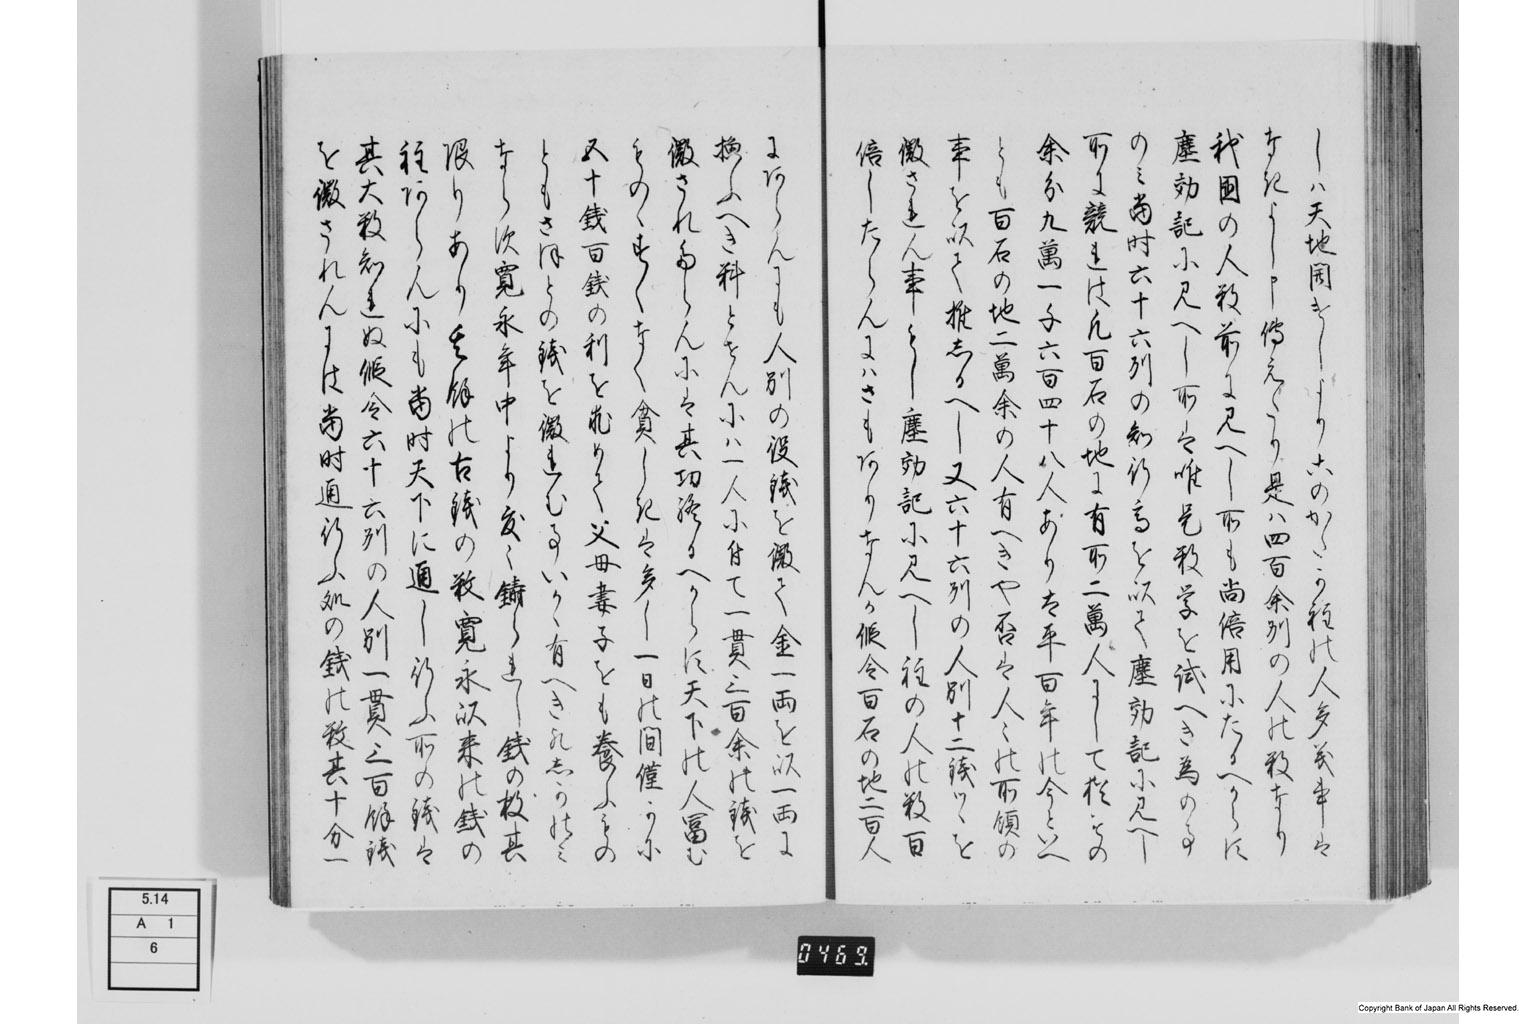 しハ天地開けしより此のかた
なきよし申傳えたり是ハ四百余列の人の数なり
我國の人数前に見へし所も尚信用にたるへからす
塵劫記に見へし所は唯是数学を試へき為の事
のミ当時六十六列の知行高を以て塵劫記に見へし
所に競れは凡百石の地に有所二萬人にして
余分九萬一千六百四十八人あり太平百年の今といへ
とも百石の地二萬余の人有へきや否は人々の所領の
事を以て推しるへし又六十六列の人別十二銭つゝを
徴されん事もし塵劫記に見へし程の人の数百
倍したらんにハさもありなんか假令百石の地二百人
にあらんにも人別の役銭を徴て金一両を以一両に
換ふへき料とせんにハ一人に付て一貫三百余の銭を
徴されすしては其功終るへからす天下の人富む
ものハすくなく貧しきは多し一日の間僅かに
五十銭百銭の利を求めて父母妻子をも養ふもの
ともさほとの銭を徴れむ事いかゝ有へき
なら次寛永年中より度々鋳られし銭の数其
限りあり其餘の古銭の数寛永以来の銭の
程あらんにも当時天下に通し行ふ所の銭は
其大数知れぬ假令六十六列の人別一貫三百餘銭
を徴されんには当時通行ふ処の銭の数其十分一
5.14
A 1
6
0469
Copyright Bank of Japan All Rights Reserved.